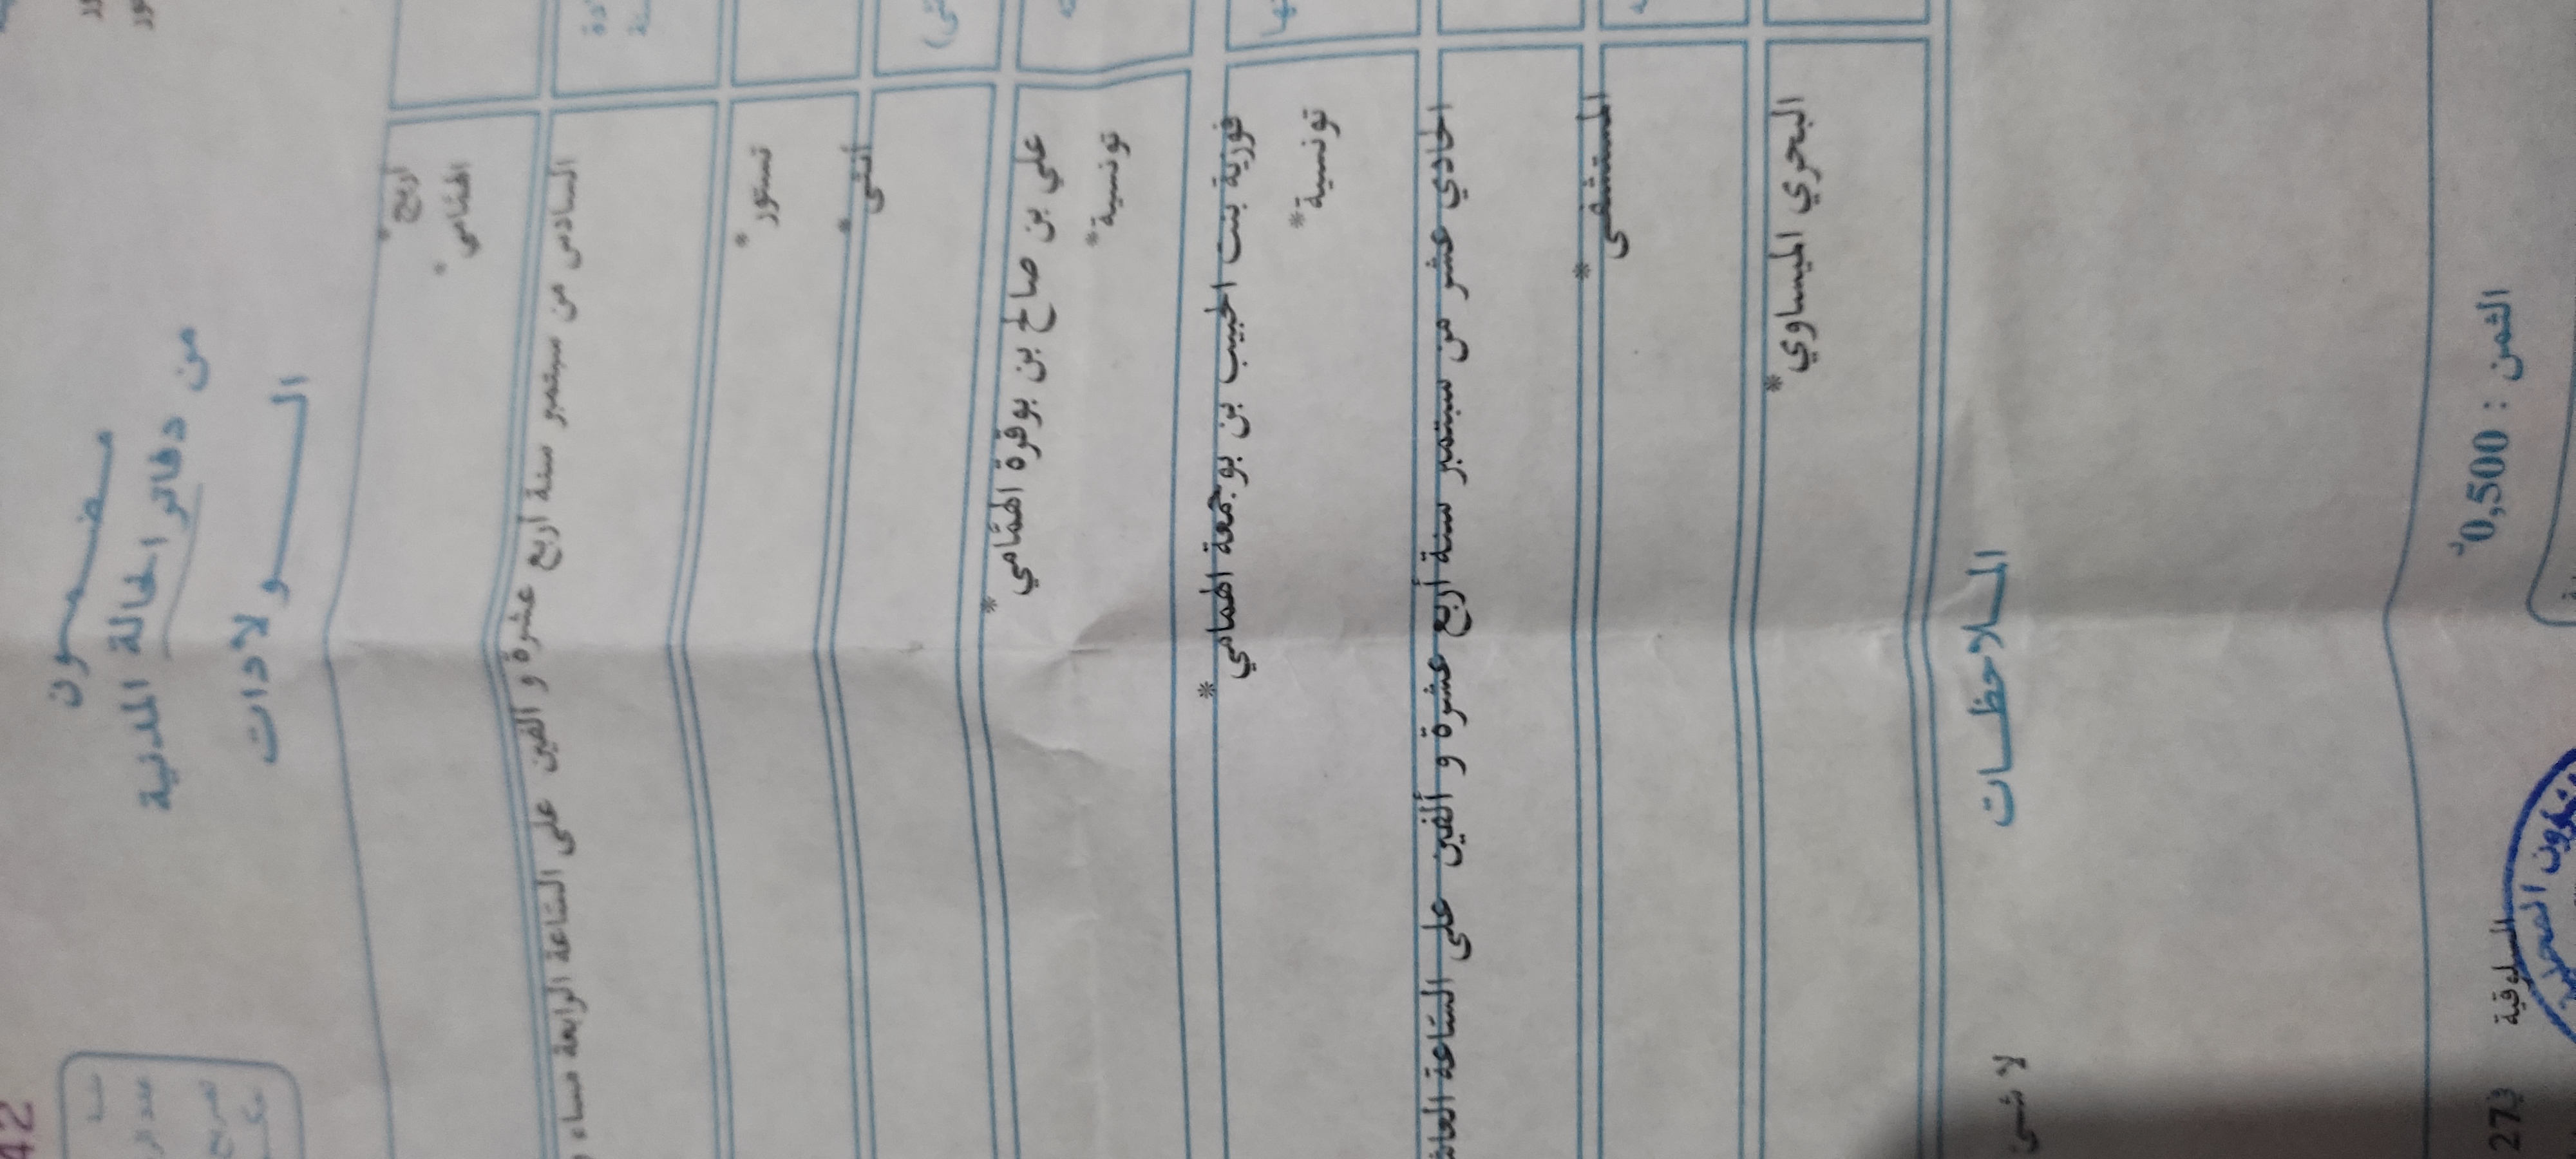 مضمون
من دفاتر الحالة المدنية
الولادات
أريج*
الهمّامي*
السادس من سبتمبر سنة أربع عشرة و ألفين على السّاعة الرابعة مساء
تستور*
أنثى*
علي بن صالح بن بوقرة الهمّامي*
تونسية*
فوزية بنت الحبيب بن بوجمعة الهمامي*
تونسية*
الحادي عشر من سبتمبر سنة أربع عشرة و ألفين على السّاعة
المستشفى*
البحري الميساوي*
الملاحظات
لا شيئ
الثمن : 0,500
السلوقية
273
42